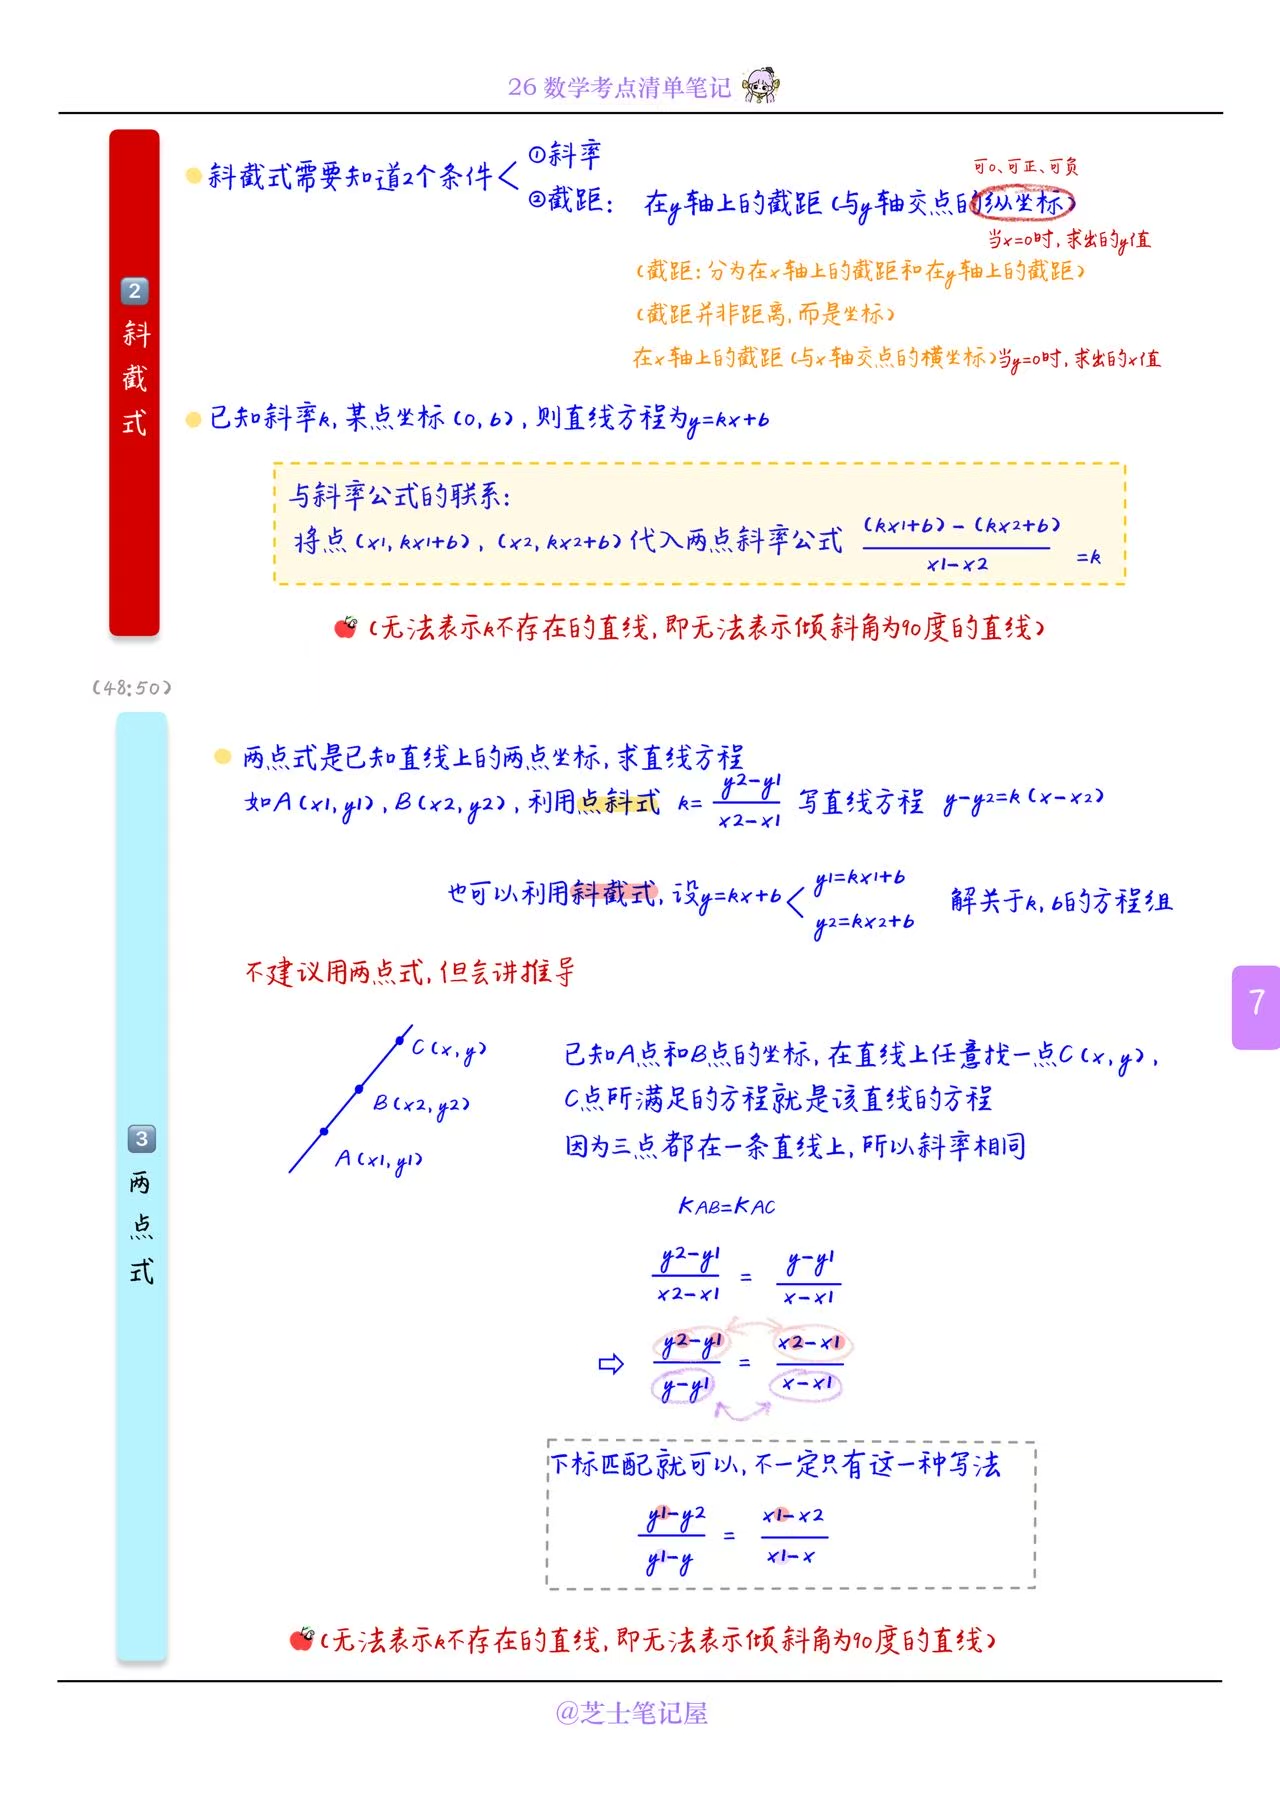 26 数学考点清单笔记
2
斜
截
式
斜截式需要知道2个条件
①斜率
可0、可正、可负
②截距: 在y轴上的截距(与y轴交点的纵坐标)
当x=0时,求出的y值
(截距:分为在x轴上的截距和在y轴上的截距)
(截距并非距离,而是坐标)
在x轴上的截距(与x轴交点的横坐标)当y=0时,求出的x值
已知斜率k,某点坐标(0,b),则直线方程为y=kx+b
与斜率公式的联系:
将点(x1,kx1+b),(x2,kx2+b)代入两点斜率公式 (kx1+b)-(kx2+b)
x1-x2 =k
(无法表示k不存在的直线,即无法表示倾斜角为90度的直线)
(48:50)
3
两
点
式
两点式是已知直线上的两点坐标,求直线方程
如A(x1,y1),B(x2,y2),利用点斜式 k= y2-y1
x2-x1 写直线方程 y-y2=k(x-x2)
也可以利用斜截式,设y=kx+b
y1=kx1+b
y2=kx2+b
解关于k,b的方程组
不建议用两点式,但会讲推导
C(x,y)
B(x2,y2)
A(x1,y1)
已知A点和B点的坐标,在直线上任意找一点C(x,y),
C点所满足的方程就是该直线的方程
因为三点都在一条直线上,所以斜率相同
KAB=KAC
y2-y1 = y-y1
x2-x1 x-x1
⇨ y2-y1 = x2-x1
y-y1 x-x1
下标匹配就可以,不一定只有这一种写法
y1-y2 = x1-x2
y1-y x1-x
(无法表示k不存在的直线,即无法表示倾斜角为90度的直线)
7
@芝士笔记屋